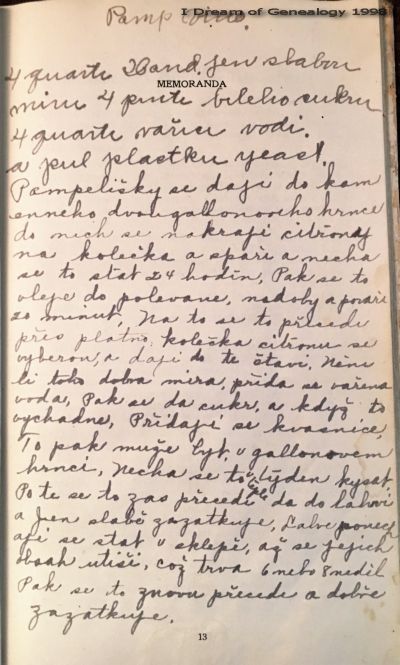 Pamp Vino.
I Dream of Genealogy 1998
4 quarti Dand. jen slabou
MEMORANDA
miru 4 pinte bileho cukru
4 quarti vařici vodi.
a pul plastku yeast.
Pampelišky se daji do kam
enneho dvougallonoviho hrnce
do nich se nakraji citrony
na kolečka a spaři a necha
se to stat 24 hodin, Pak se to
vleje do polevane, nadoby a povaři
20 minut, Na to se to přecedi
přes platno, kolečka citronu se
vyberou, a daji do te štavi, Neni
li toho dobra mira, přida se vařena
voda, Pak se da cukr, a když to
vychadne, Přidaji se kvasnice,
To pak muže byt, v gallonovem
hrnci, Necha se to týden kysat.
Po te se to zas přecedi da do lahvi
a jen slabě zazatkuje, Lahve ponech
aji se stat v sklepě, až se jejich
obsah utiši, což trva 6 nebo 8 nedil
Pak se to znovu přecedi a dobře
zazatkuje.
13